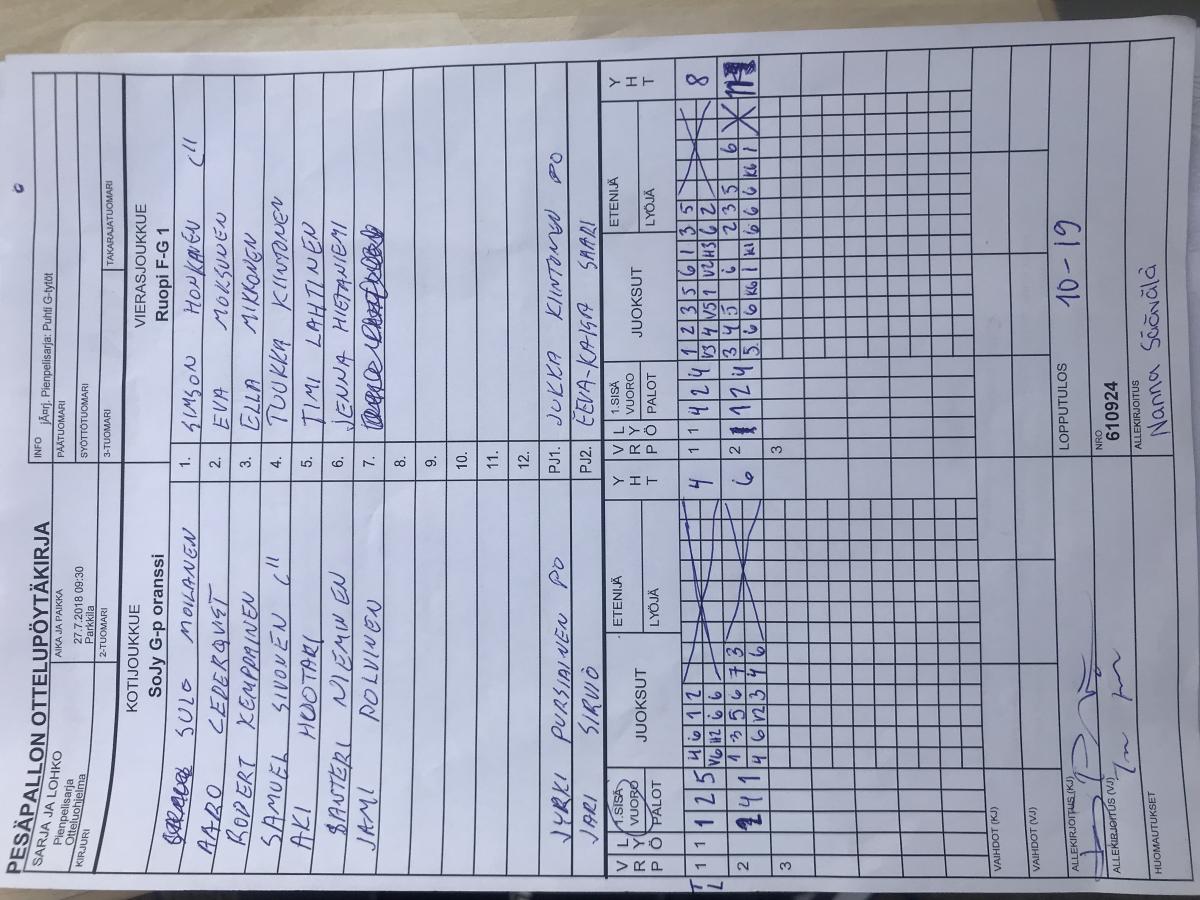 PESÄPALLON OTTELUPÖYTÄKIRJA
SARJA JA LOHKO
Pienpelisarja
Otteluohjelma
AIKA JA PAIKKA
27.7.2018 09:30
Parkkila
INFO jÄ¤rj. Pienpelisarja: Puhti G-tytöt
PÄÄTUOMARI
SYÖTTÖTUOMARI
KIRJURI
2-TUOMARI
3-TUOMARI
TAKARAJATUOMARI
KOTIJOUKKUE
SoJy G-p oranssi
VIERASJOUKKUE
Ruopi F-G 1
SULO MOILANEN 1. SIMSON HONKANEN C"
AARO CEDERQVIST 2. EVA MOKSUNEN
ROPERT KEMPPAINEN 3. ELLA MIKKONEN
SAMUEL SIVONEN C" 4. TUUKKA KIINTONEN
AKI HUOTARI 5. TIMI LAHTINEN
SANTERI NIEMINEN 6. JENNA HIETANIEMI
JAMI POLVINEN 7.
8.
9.
10.
11.
12.
JYRKI PURSIAINEN PO PJ1. JUKKA KIINTONEN PO
JARI SIRVIÖ PJ2. EEVA-KAISA SAARI
V R P L Y Ö 1.SISÄ VUORO PALOT JUOKSUT ETENIJÄ LYÖJÄ Y H T
V R P L Y Ö 1.SISÄ VUORO PALOT JUOKSUT ETENIJÄ LYÖJÄ Y H T
T L 1 1 1 2 5 4 6 1 2 4 1 1 4 2 4 1 2 3 5 6 1 3 5 8
V6 H2 6 6 V3 4 V5 1 V2 H3 6 2
2 2 4 1 1 3 5 6 7 3 6 2 1 2 4 3 4 5 6 2 3 5 6
4 6 V2 3 4 6 5 6 6 K6 1 K1 6 6 6 6 K6 1
3 3
VAIHDOT (KJ)
VAIHDOT (VJ)
ALLEKIRJOITUS (KJ)
LOPPUTULOS 10-19
ALLEKIRJOITUS (VJ)
NRO
610924
HUOMAUTUKSET
ALLEKIRJOITUS
Nanna Säävälä